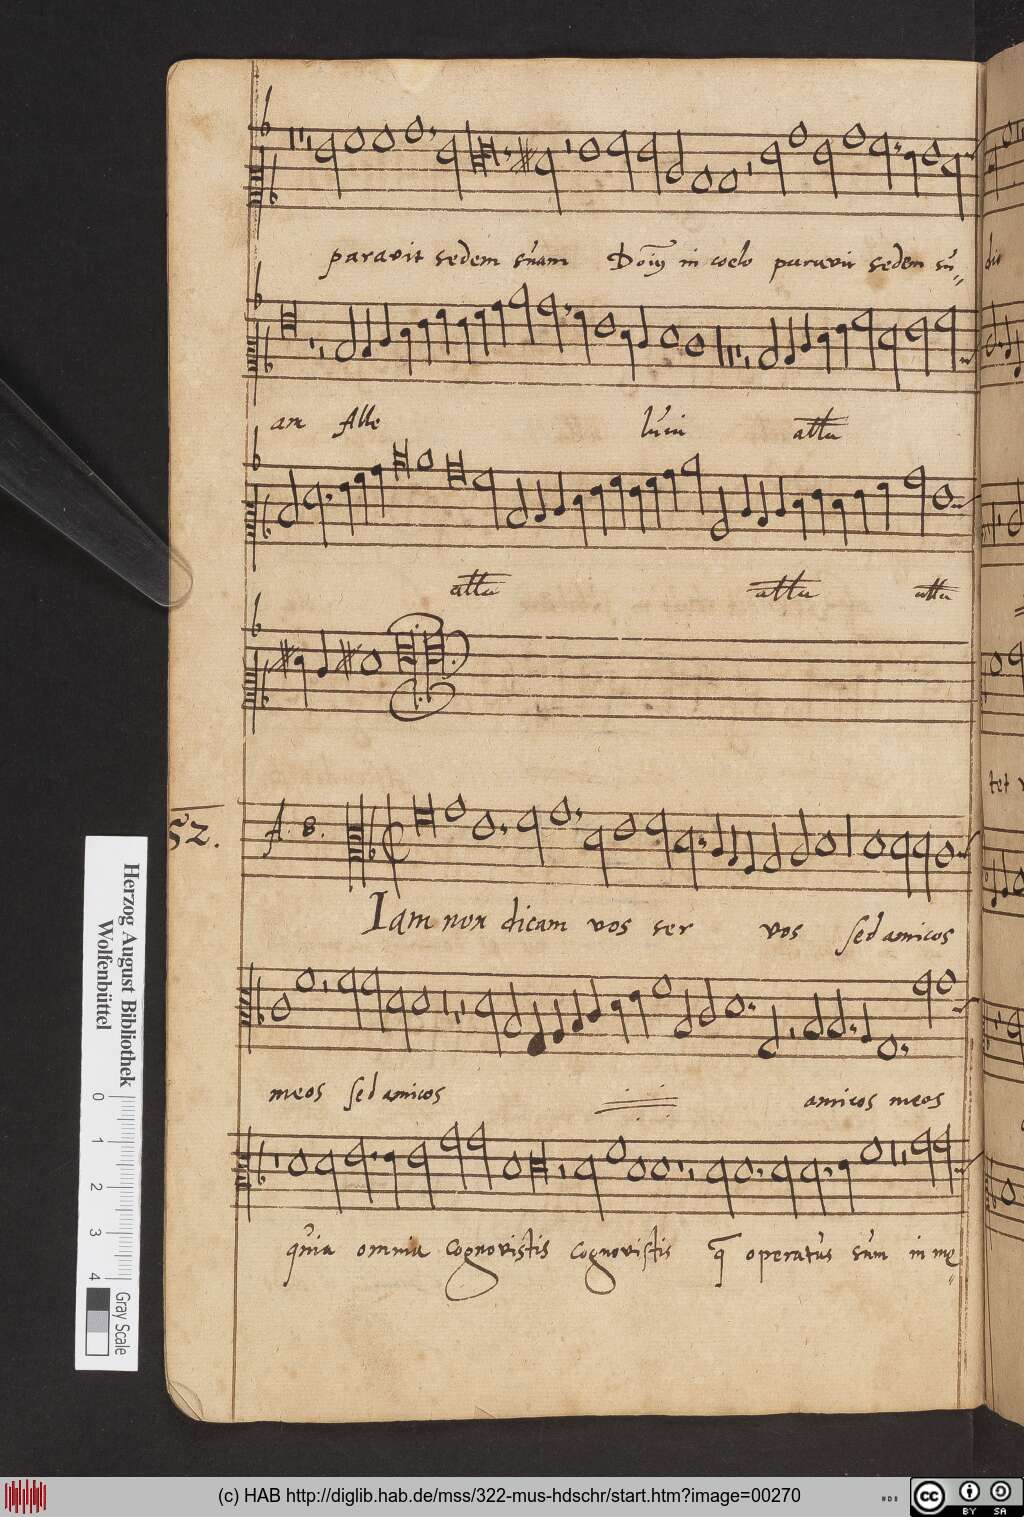 paravit sedem suam Domi in coelo paravit sedem su
am Alle luia allu
allu allu allu
52.
A. 8.
Iam non dicam vos ser vos sed amicos
meos sed amicos amicos meos
quia omnia cognovistis cognovistis q operatus sum in me
Herzog August Bibliothek
Wolfenbüttel
0 1 2 3 4
Gray Scale
(c) HAB http://diglib.hab.de/mss/322-mus-hdschr/start.htm?image=00270
cc BY SA